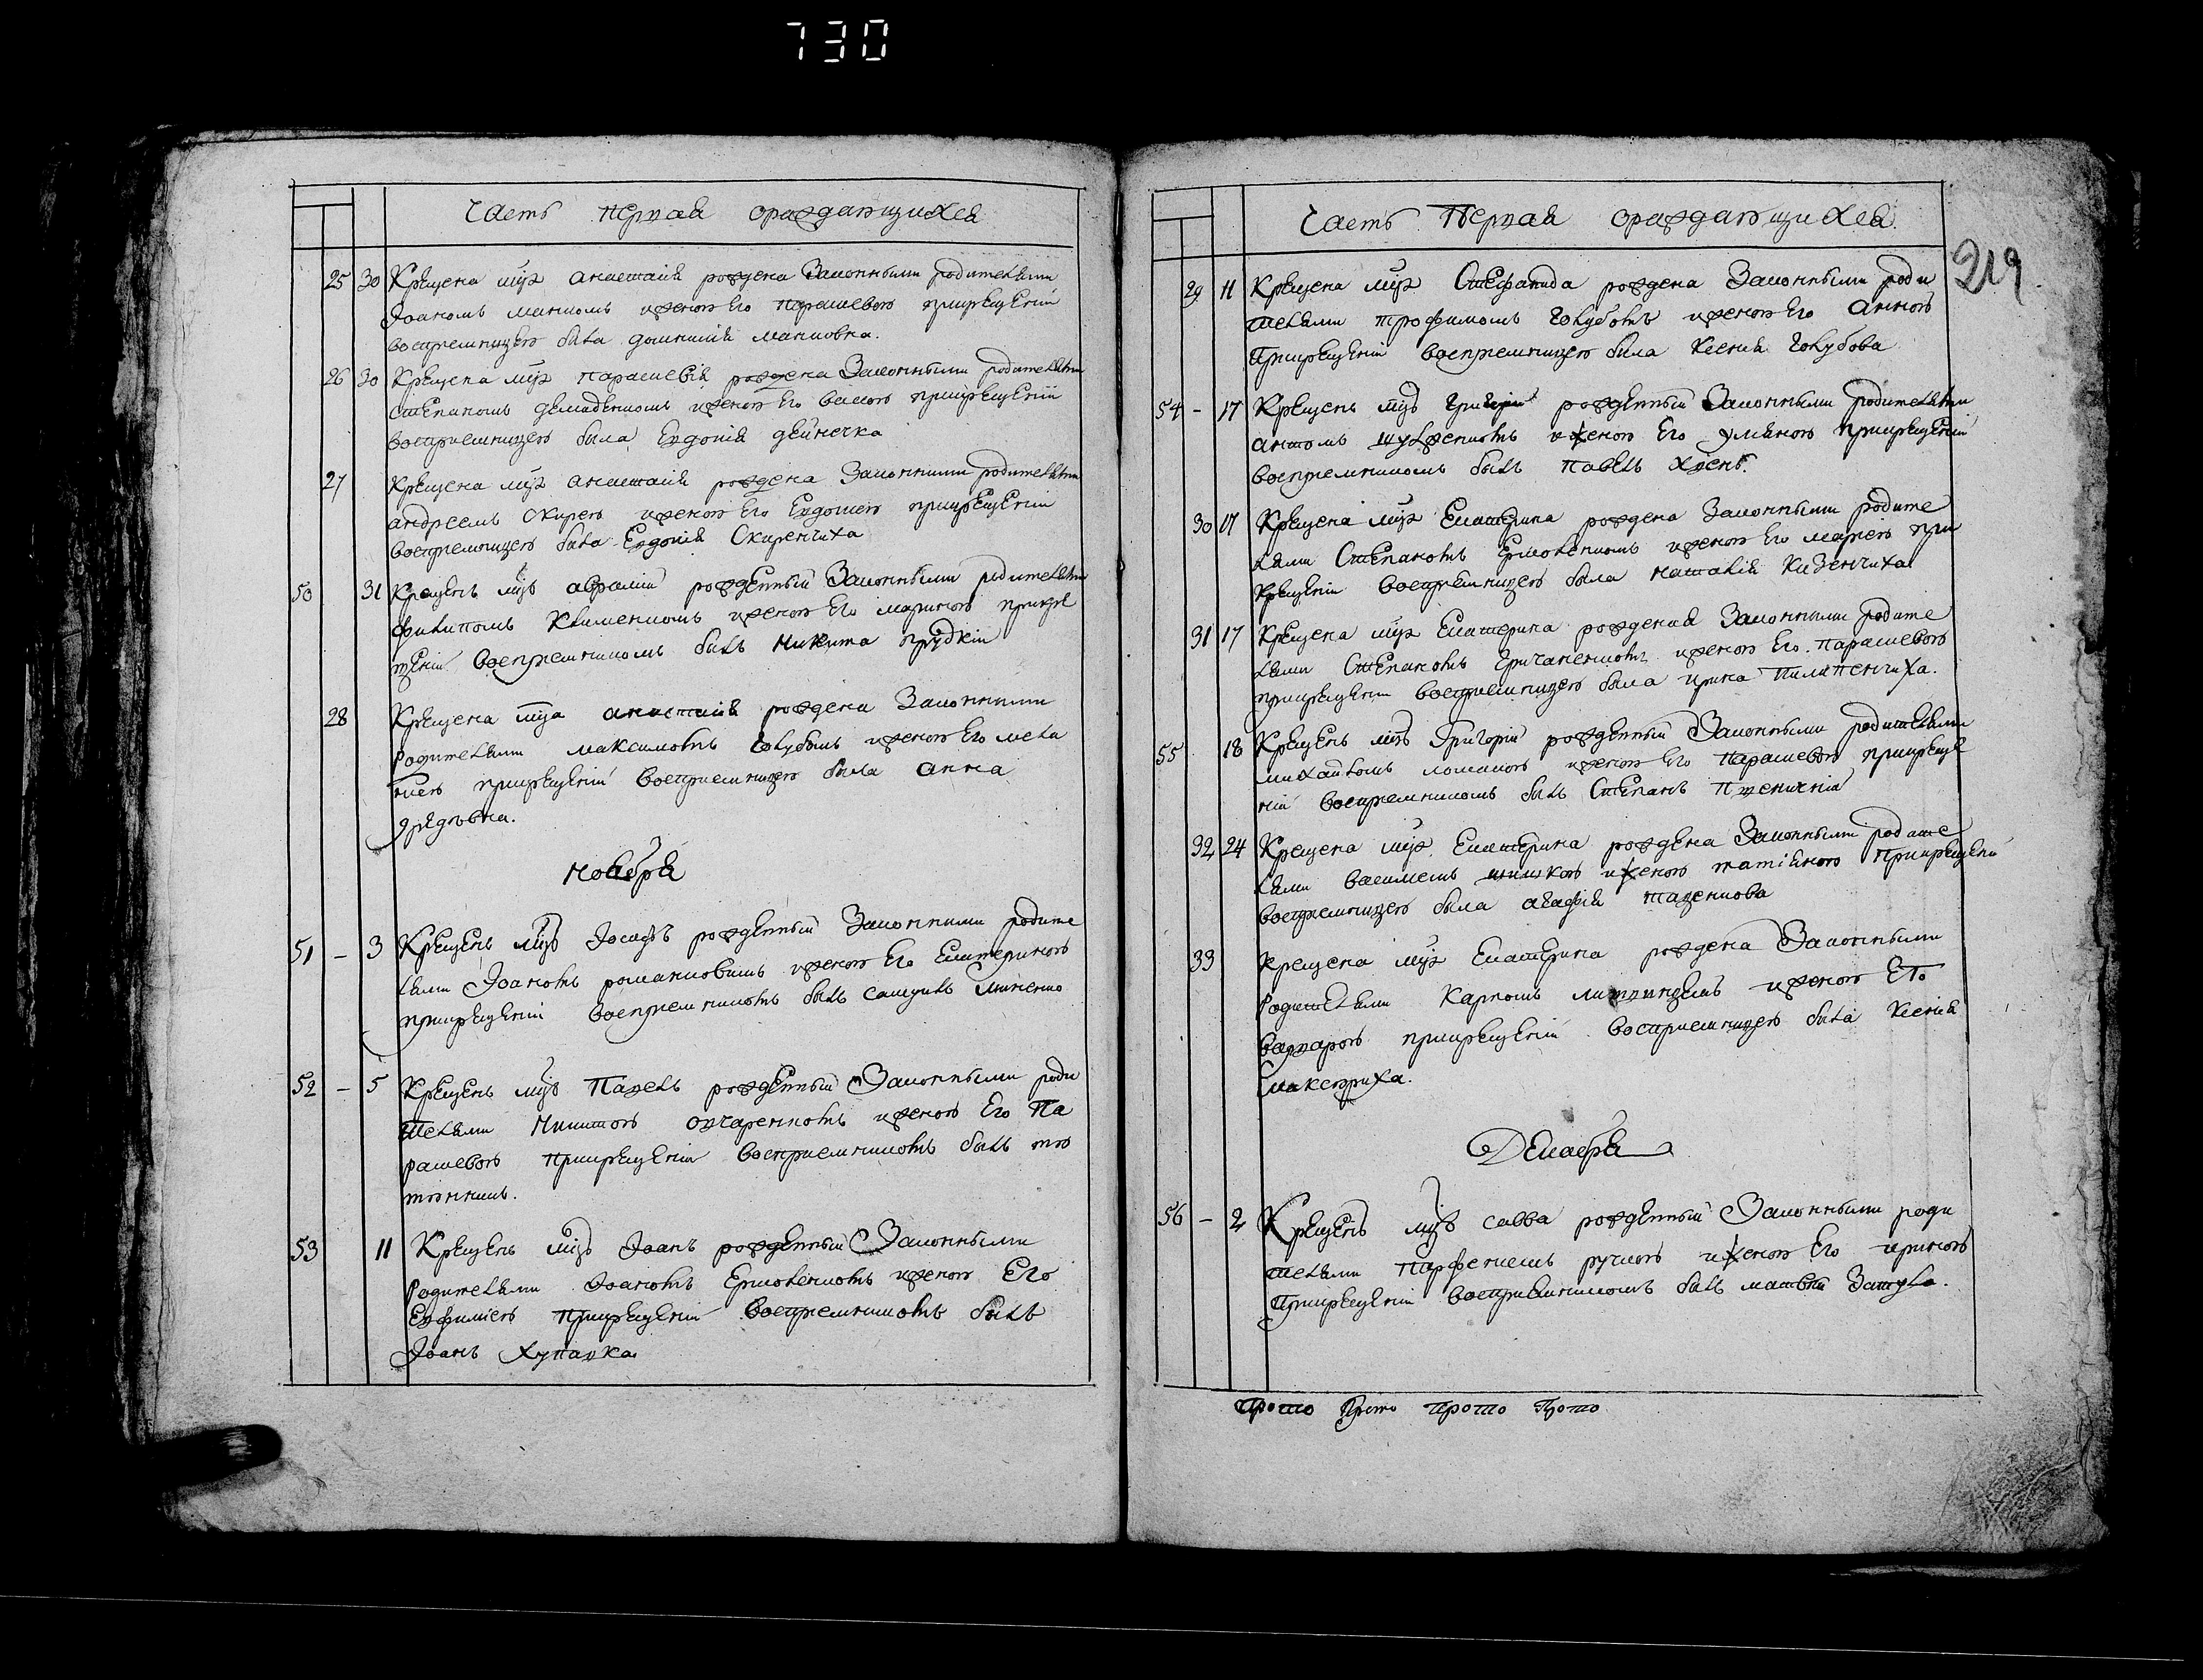 730
Часть первая ораждающихся
25 30 Крещена мца анастасия рождена Законными родителями
Іоаномъ макиомъ иженою Его парасквою прикрещении
восприемницею была
26 30 Крещена мца параскевія рождена Законными родителями
Степаномъ иженою Его прикрещеніи
восприемницею была Евдокія дейнечка
27 Крещена мца анастасія рождена Законними родителями
андреемъ Скирею иженою Его Евдокиею прикрещеніи
восприемницею была Евдокія Скиренчиха
50 31 Крещенъ мцъ аврамій рожденный Законными родителями
филипомъ Клименкомъ иженою Его мариною прикре
щеніи восприемникомъ былъ Никита прудкіи
28 Крещена мца анастасія рождена Законними
родителями максимомъ Голубомъ иженою Его мела
ниею прикрещеніи восприемницею была анна
ноября
51 – 3 Крещенъ мцъ Іосифъ рожденный Законними родите
лями Іоаномъ романковимъ иженою Его Екатериною
прикрещеніи восприемникомъ былъ
52 – 5 Крещенъ мцъ Павелъ рожденный Законными роди
телями Никитою овчаренкомъ иженою Его Па
расквою прикрещеніи восприемникомъ былъ тю
тюнникъ.
53 11 Крещенъ мцъ Іоанъ рожденный Законными
родителями Іоаномъ Ермоленкомъ иженою Его
Евфимиею прикрещеніи восприемникомъ былъ
Іоанъ Хупавка
Часть Первая ораждающихся.
219
29 11 Крещена мца Стефанида рождена Законными роди
телями трофимомъ Голубомъ иженою Его Анною
Прикрещеніи восприемницею была Ксенія Голубова
54 – 17 Крещенъ мцъ Григоріи рожденный Законными родителями
иженою Его прикрещеніи
восприемникомъ былъ Павелъ
30 17 Крещена мца Екатерина рождена Законными родите
лями Степаномъ Ермоленкомъ иженою Его мариею при
крещеніи восприемницею была наталія
31 17 Крещена мца Екатерина рожденая Законными родите
лями Степаномъ Гричаненкомъ иженою Его параскевою
прикрещеніи восприемницею была ирина Пилипенчиха.
55 18 Крещенъ мцъ Григоріи рожденный Законными родителями
михаиломъ иженою Его параскевою прикреще
ніи восприемникомъ былъ Степанъ Пшеничніи
32 24 Крещена мца Екатерина рождена Законными родите
лями василемъ шишкою иженою татіяною прикрещеніи
восприемницею была агафія
33 Крещена мца Екатерина рождена Законными
родителями Карпомъ литвинцемъ иженою Его
варварою прикрещеніи восприемницею была Ксенія
Декабря
56 – 2 Крещенъ мцъ савва рожденный Законными роди
телями парфениемъ ручкою иженою Его ириною
Прикрещеніи восприемникомъ былъ матвей
Прото Прото прото Прото